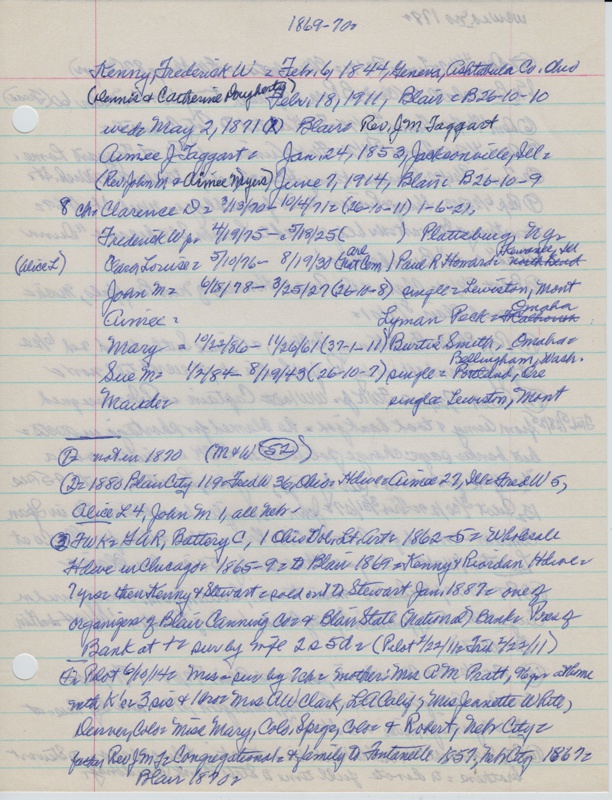 1869-70s
Kenny, Frederick W = Feb. 6, 1844, Geneva, Ashtabula Co. Ohio
(Dennis & Catherine Dougherty) Feb. 18, 1911, Blair = B26-10-10
wed= May 2, 1871 Blair= Rev. J M Taggart
Aimee J Taggart = Jan. 24, 1853, Jacksonville, Ill=
(Rev John M & Aimee Myers) June 7, 1914, Blair= B26-10-9
8 ch= Clarence D = 10/4/71= (26-10-11) 1-6-21,
Frederick W jr= 4/19/75 - 5/19/25 ( ) Plattsburg, N.Y=
(Alice L) Carol Louise= 5/10/76 - 8/19/30 Paul R Howard= Kewanee, Ill
John M= 6/18/78 - 3/25/27 (26-10-8) single= Lewiston, Mont
Aimee = Lyman Peck= Omaha
Mary = 10/22/86 - 1/26/61 (37-1-11) Burtis Smith, Omaha=
Bellingham, Wash.
Sue M= 1/2/84 - 8/19/43 (26-10-7) single= Portland, Ore
Maude= single= Lewiston, Mont
1= not in 1870 (M&W 52)
2= 1880 Blair City 119= Fred W 36, Ohio= Hdwe= Aimee 27, Ill= Fred W 5,
Alice L 4, John M 1, all Neb-
3 FWK= GAR, Battery C, 1 Ohio Vol. Lt. Art= 1862-5= Wholesale
Hdwe in Chicago= 1865-9= to Blair 1869= Kenny & Riordan Hdwe=
7 yrs= then Kenny & Stewart= sold out to Stewart Jan. 1887= one of
organizers of Blair Canning Co= & Blair State (National) Bank= Pres of
Bank at †= sur by wife 2s 5d= (Pilot 2/22/11= Trib 2/22/11)
Pilot 6/10/14= Mrs= sur by 7 ch= mother= Mrs A M Pratt, at home
with K's= 3 sis & 1 bro= Mrs A W Clark, LA Calif; Mrs Jeannette White,
Denver, Colo= Miss Mary, Colo. Spgs, Colo= & Robert, Neb City=
father Rev J M T= Congregational= & family to Fontanelle 1857, Neb City 1867=
Blair 1870=